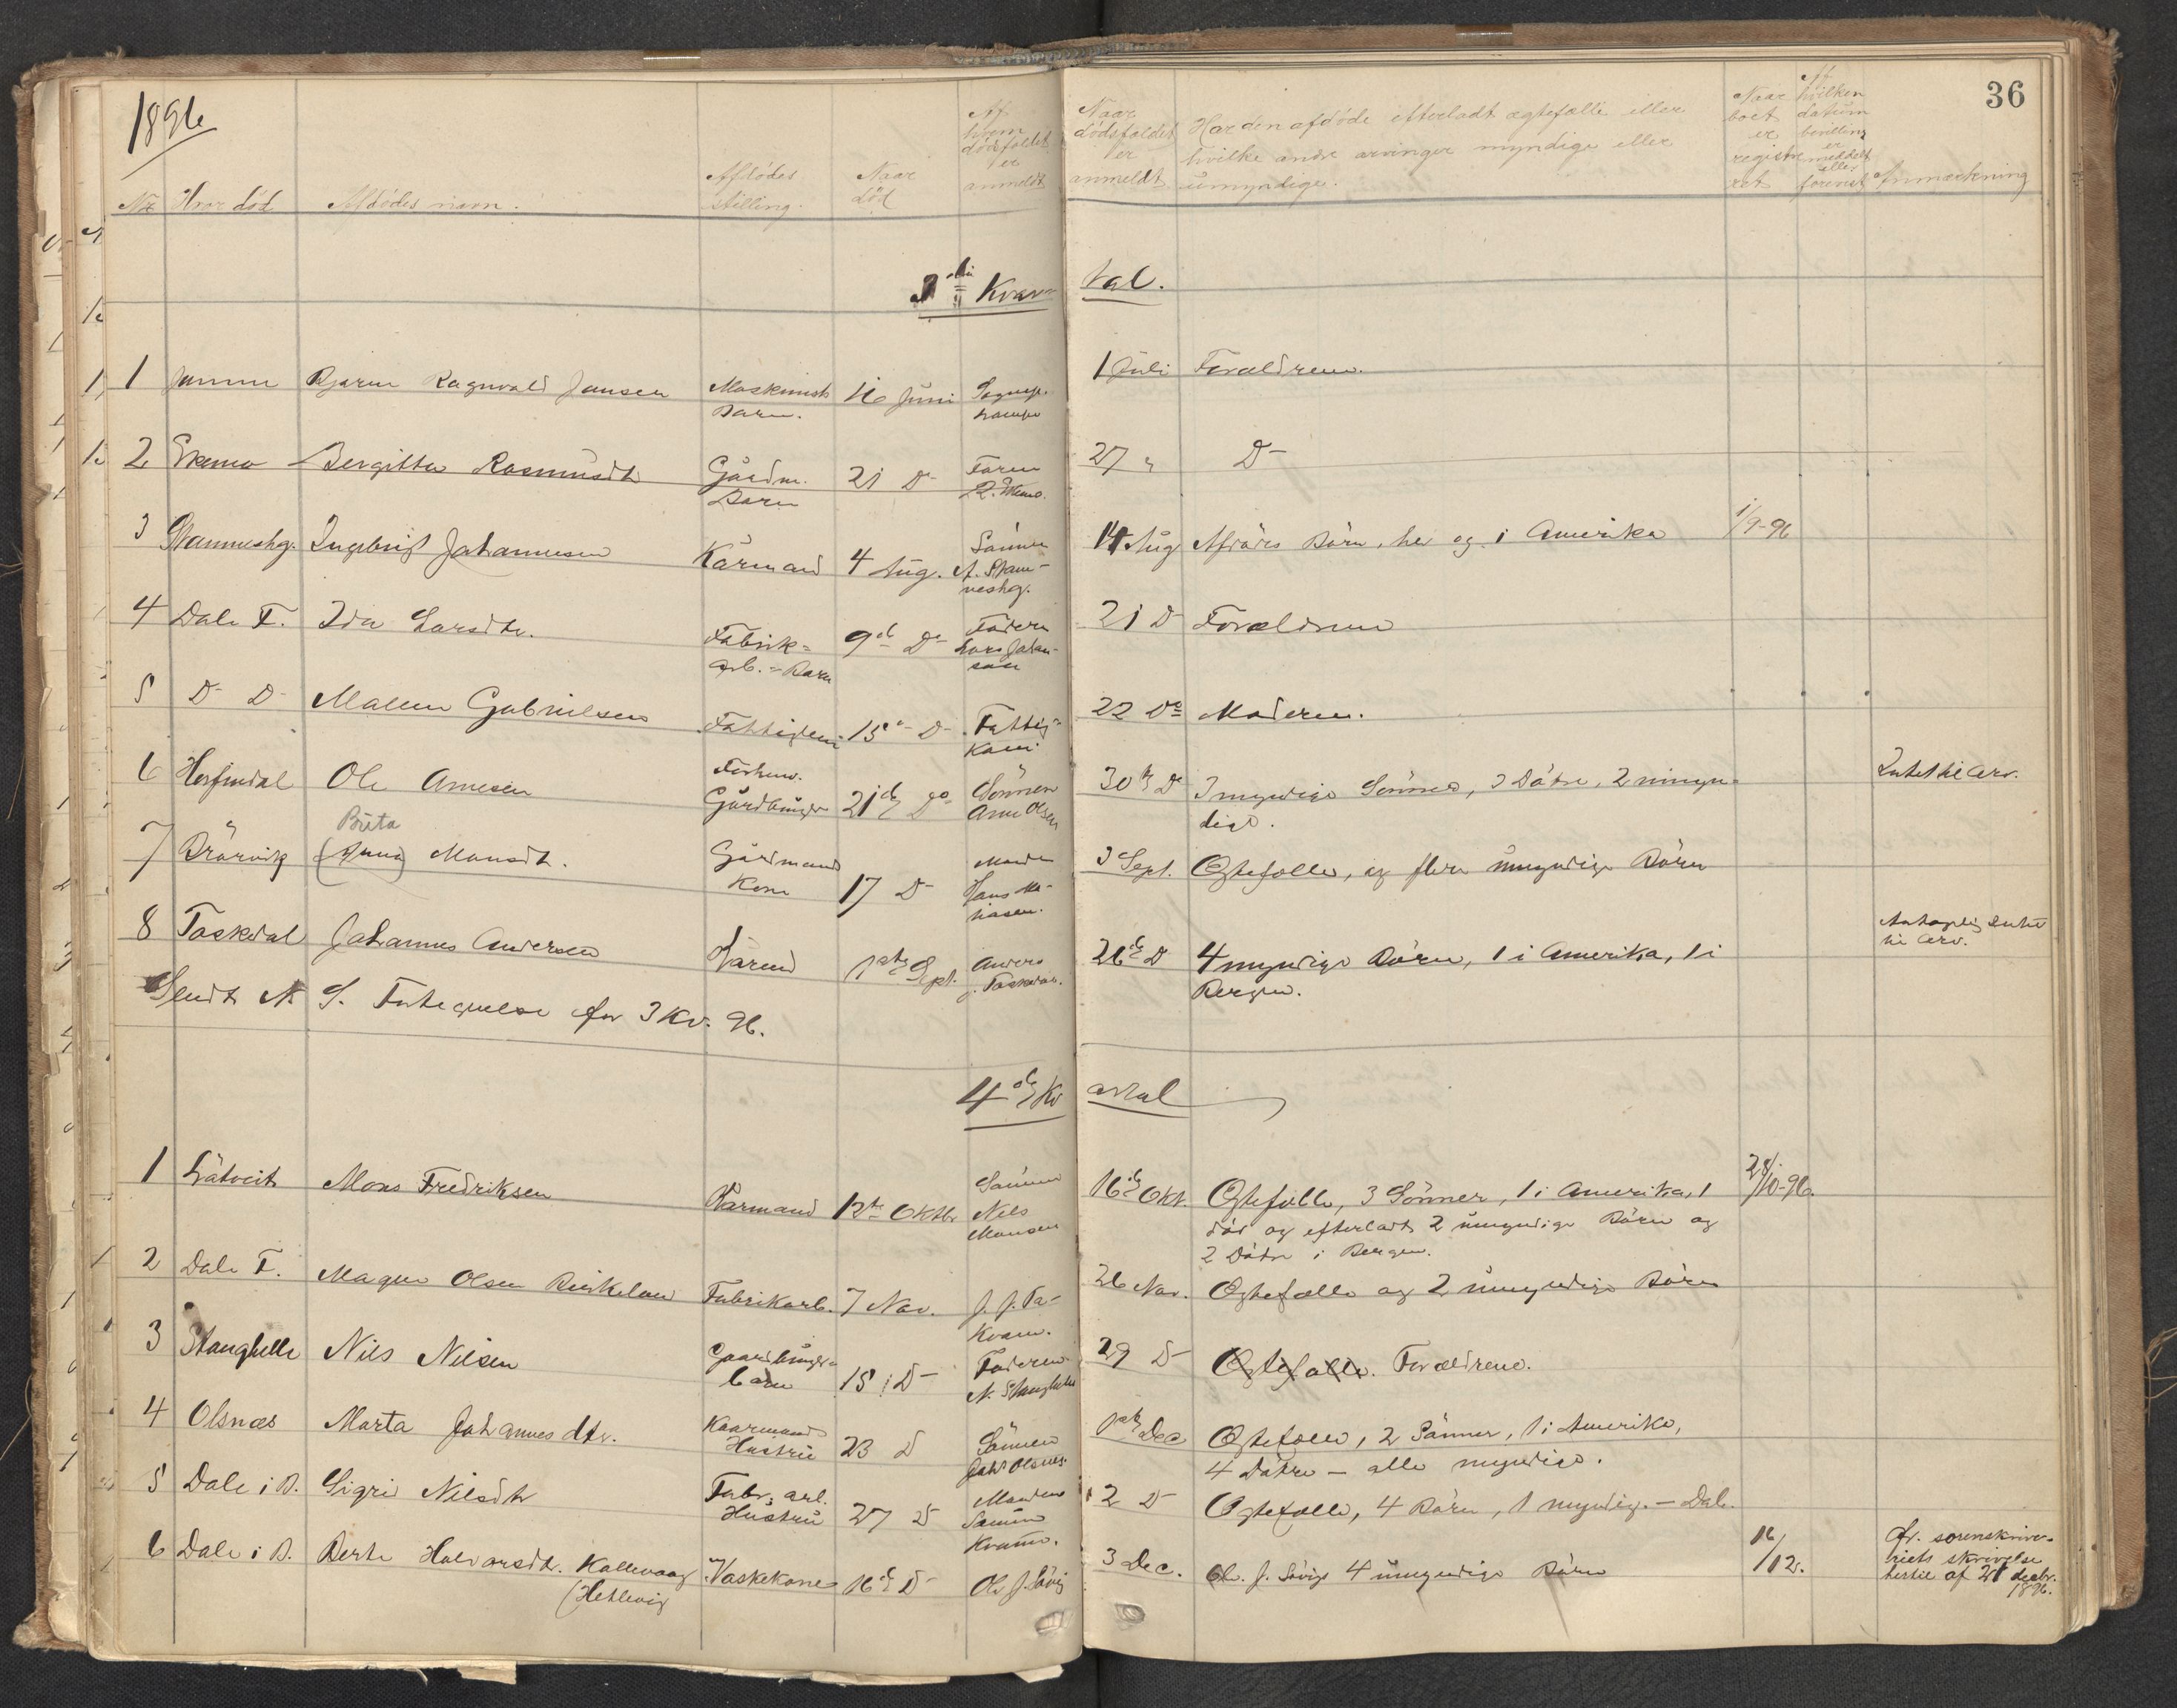 1896
36
No Hvor död Afdödes navn. Afdödes stilling. Naar död Af hvem dödsfaldet er anmeldt Naar dödsfaldet er anmeldt Har den afdöde efterladt ægtefælle eller hvilke andre arvinger myndige eller umyndige. Naar boet er registreret Af hvilken datum bevilling er meddelt eller forevist Anmærkning
3die Kvar tal.
1 Bjarne Ragnvald Jansen Maskinist Barn. 16 Juni 1 Juli Forældrene.
2 Bergitta Rasmusdt Gårdm. Barn 21 D- Faren 27 " D-
3 Stamneshg. Ingebrigt Johannesen Kårmand 4 Aug. Sönnen A. Stamneshg. 14 Aug Afdödes Börn, her og i Amerika 1/9-96
4 Dale F. Ida Larsdtr. Fabrikarb.-Barn 9de D- Faderen Lars Johansen 21 D Forældrene
5 D- D- Malene Gabrielsen Fattiglem 15de D- Fattigkom. 22 Do Moderen.
6 Herfindal Ole Arnesen Forhenv. Gårdbruger 21de Do Sönnen Arne Olsen 30te Do 3 myndige Sönner, 3 Dötre, 2 umyndige. Intet til Arv.
7 Brörvik (Anna) Brita Monsdt. Gårdmand Kone 17 D- Manden Hans 3 Sept. Ægtefælle, og flere umyndige Börn
8 Toskedal Johannes Andersen Kårmd 1ste Sept. Anders J. Toskedal. 26de D 4 myndige Börn, 1 i Amerika, 1 i Bergen. Antagelig Intet til Arv.
Sendt N S. Fortegnelse for 3 Kv. 96.
4de Kv artal
1 Låtveit Mons Fredriksen Kårmand 12te Oktbr Sönnen Nils Monsen 16de Okt. Ægtefælle, 3 Sönner, 1 i Amerika, 1 död og efterladt 2 umyndige Börn og 2 Dötre i Bergen. 28/10-96.
2 Dale F. Magne Olsen Birkeland Fabrikarb. 7 Nov. 26 Nov. Ægtefælle og 2 umyndige Börn
3 Stanghelle Nils Nilsen Gaardbruger barn 15 D- Faderen N. Stanghelle 29 D- Ægtefælle. Forældrene.
4 Olsnæs Marta Johannesdtr. Kaarmand Hustru 23 D Sönnen Johs Olsnes 1ste Dec Ægtefælle, 2 Sönner, 1 i Amerika, 4 Dötre - alle myndige.
5 Dale i B. Sigri Nilsdtr Fabr. arb. Hustru 27 D Manden 2 D- Ægtefælle, 4 Börn, 1 myndig. - Dale.
6 Dale i B. Berte Halvorsdt. Kallevaag (Hetlevig Vaskekone 16de D- Ole J. Lövig 3 Dec. Ol. J. Lövigs 4 umyndige Börn 16/12. Cfr. sorenskriveriets skrivelse hertil af 21 decbr. 1896.